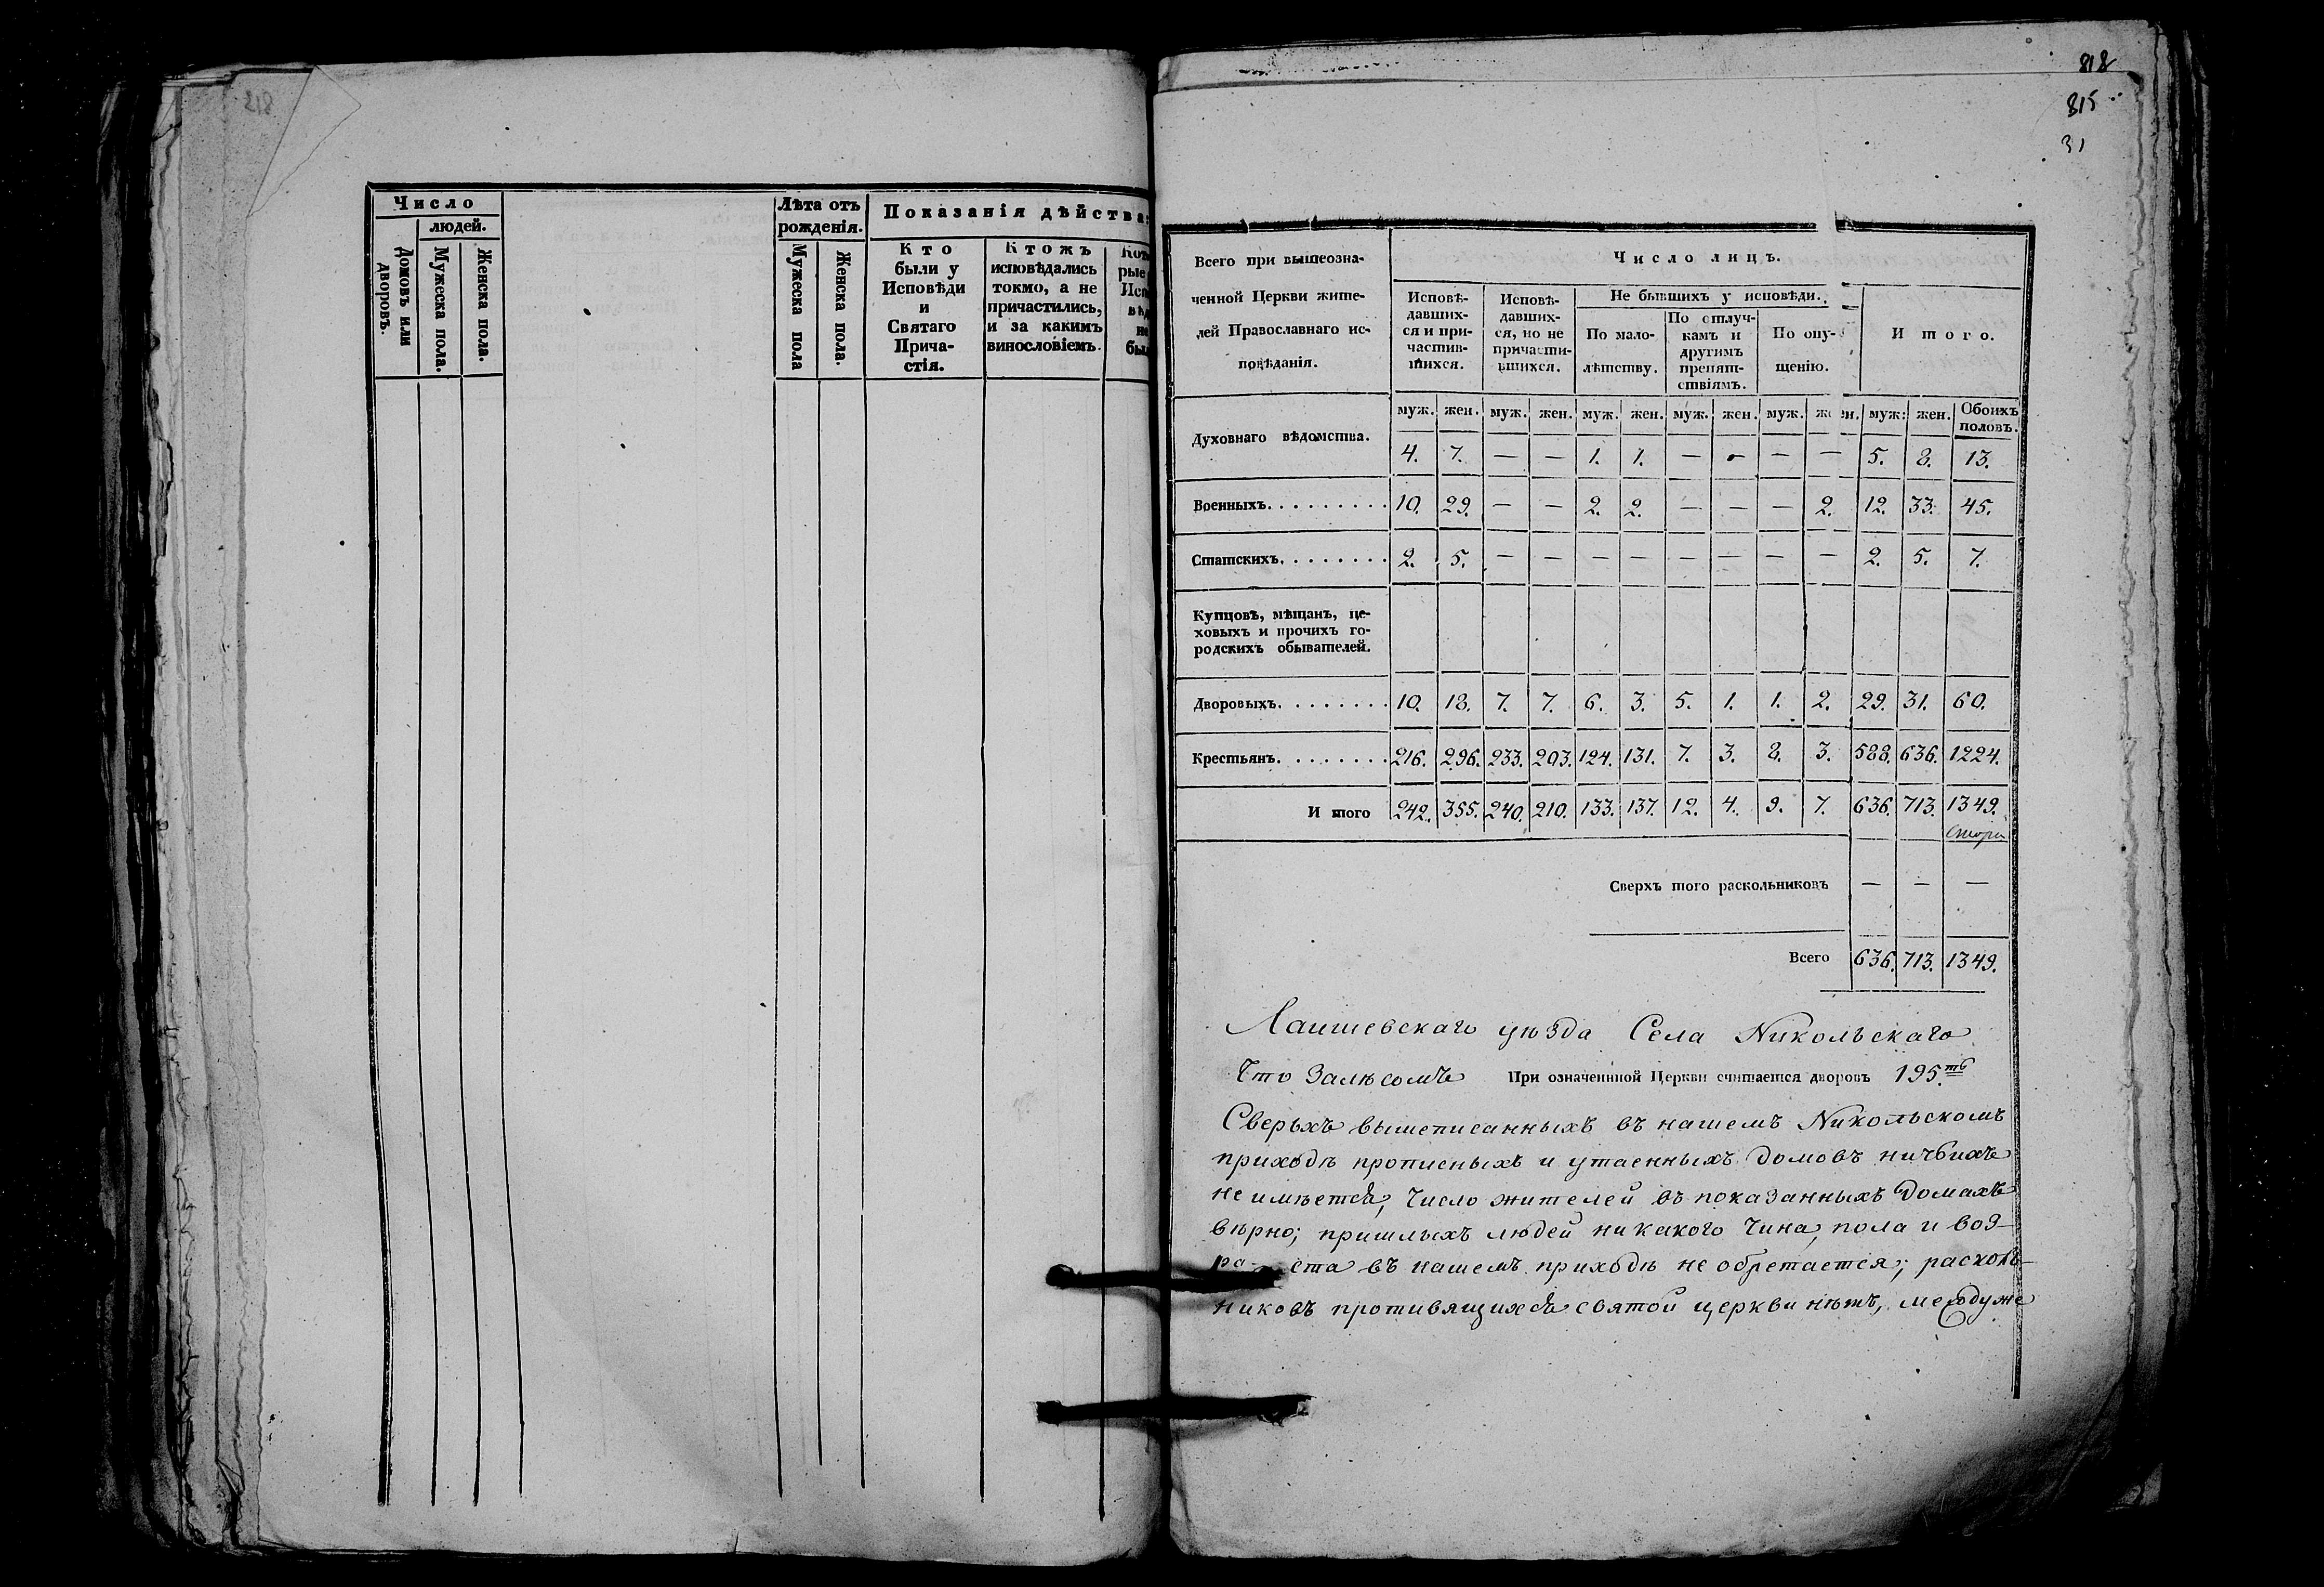 218
Число
людей.
Домовъ или дворовъ.
Мужеска пола.
Женска пола.
Лѣта отъ рожденія.
Мужеска пола
Женска пола.
Показанія дѣйства
Кто
были у
Исповѣди
и
Святаго
Прича-
стія.
Ктожъ
исповѣдались
токмо, а не
причастились,
и за какимъ
винословіемъ.
818
815
31
Всего при вышеозна-
ченной Церкви жите-
лей Православнаго ис-
повѣданія.
Число лицъ.
Исповѣ-
давших-
ся и при-
частив-
шихся.
Исповѣ-
давших-
ся, но не
причасти-
вшихся.
Не бывшихъ у исповѣди.
По мало-
лѣтству.
По отлуч-
камъ и
другимъ
препят-
ствіямъ.
По опу-
щенію.
Итого.
муж. жен. муж. жен. муж. жен. муж. жен. муж. жен. муж. жен. Обоихъ половъ.
Духовнаго вѣдомства. 4. 7. — — 1. 1. — — — — 5. 8. 13.
Военныхъ. 10. 29. — — 2. 2. — — — 2. 12. 33. 45.
Статскихъ. 2. 5. — — — — — — — — 2. 5. 7.
Купцовъ, мѣщанъ, це-
ховыхъ и прочихъ го-
родскихъ обывателей.
Дворовыхъ. 10. 18. 7. 7. 6. 3. 5. 1. 1. 2. 29. 31. 60.
Крестьянъ. 216. 296. 233. 203. 124. 131. 7. 3. 8. 3. 588. 636. 1224.
И того 242. 355. 240. 210. 133. 137. 12. 4. 9. 7. 636. 713. 1349.
Сверхъ того раскольниковъ — — —
Всего 636. 713. 1349.
Лаишевскаго уѣзда Села Никольскаго
Что Залѣсомъ При означеннной Церкви считается дворовъ 195.ть
Сверьхъ вышеписанныхъ въ нашемъ Никольскомъ
приходѣ прописныхъ и утаенныхъ домовъ ничьихъ
не имѣется, число жителей въ показанныхъ домахъ
вѣрно; пришлыхъ людей никакого чина, пола и воз-
раста въ нашемъ приходѣ не обретается; расколь-
никовъ противящихся святой церкви нѣтъ, междуже